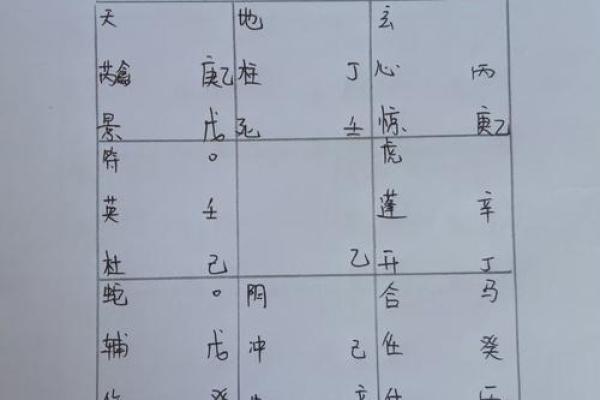 天 地 玄
芮禽 庚乙 柱 丁 心 丙
景 戊 死 壬 惊 庚乙
符 ○ 虎
英 壬 蓬 辛
杜 己 乙 开 丁
蛇 ○ 阴 合 马
辅 戊 冲 己 任 癸